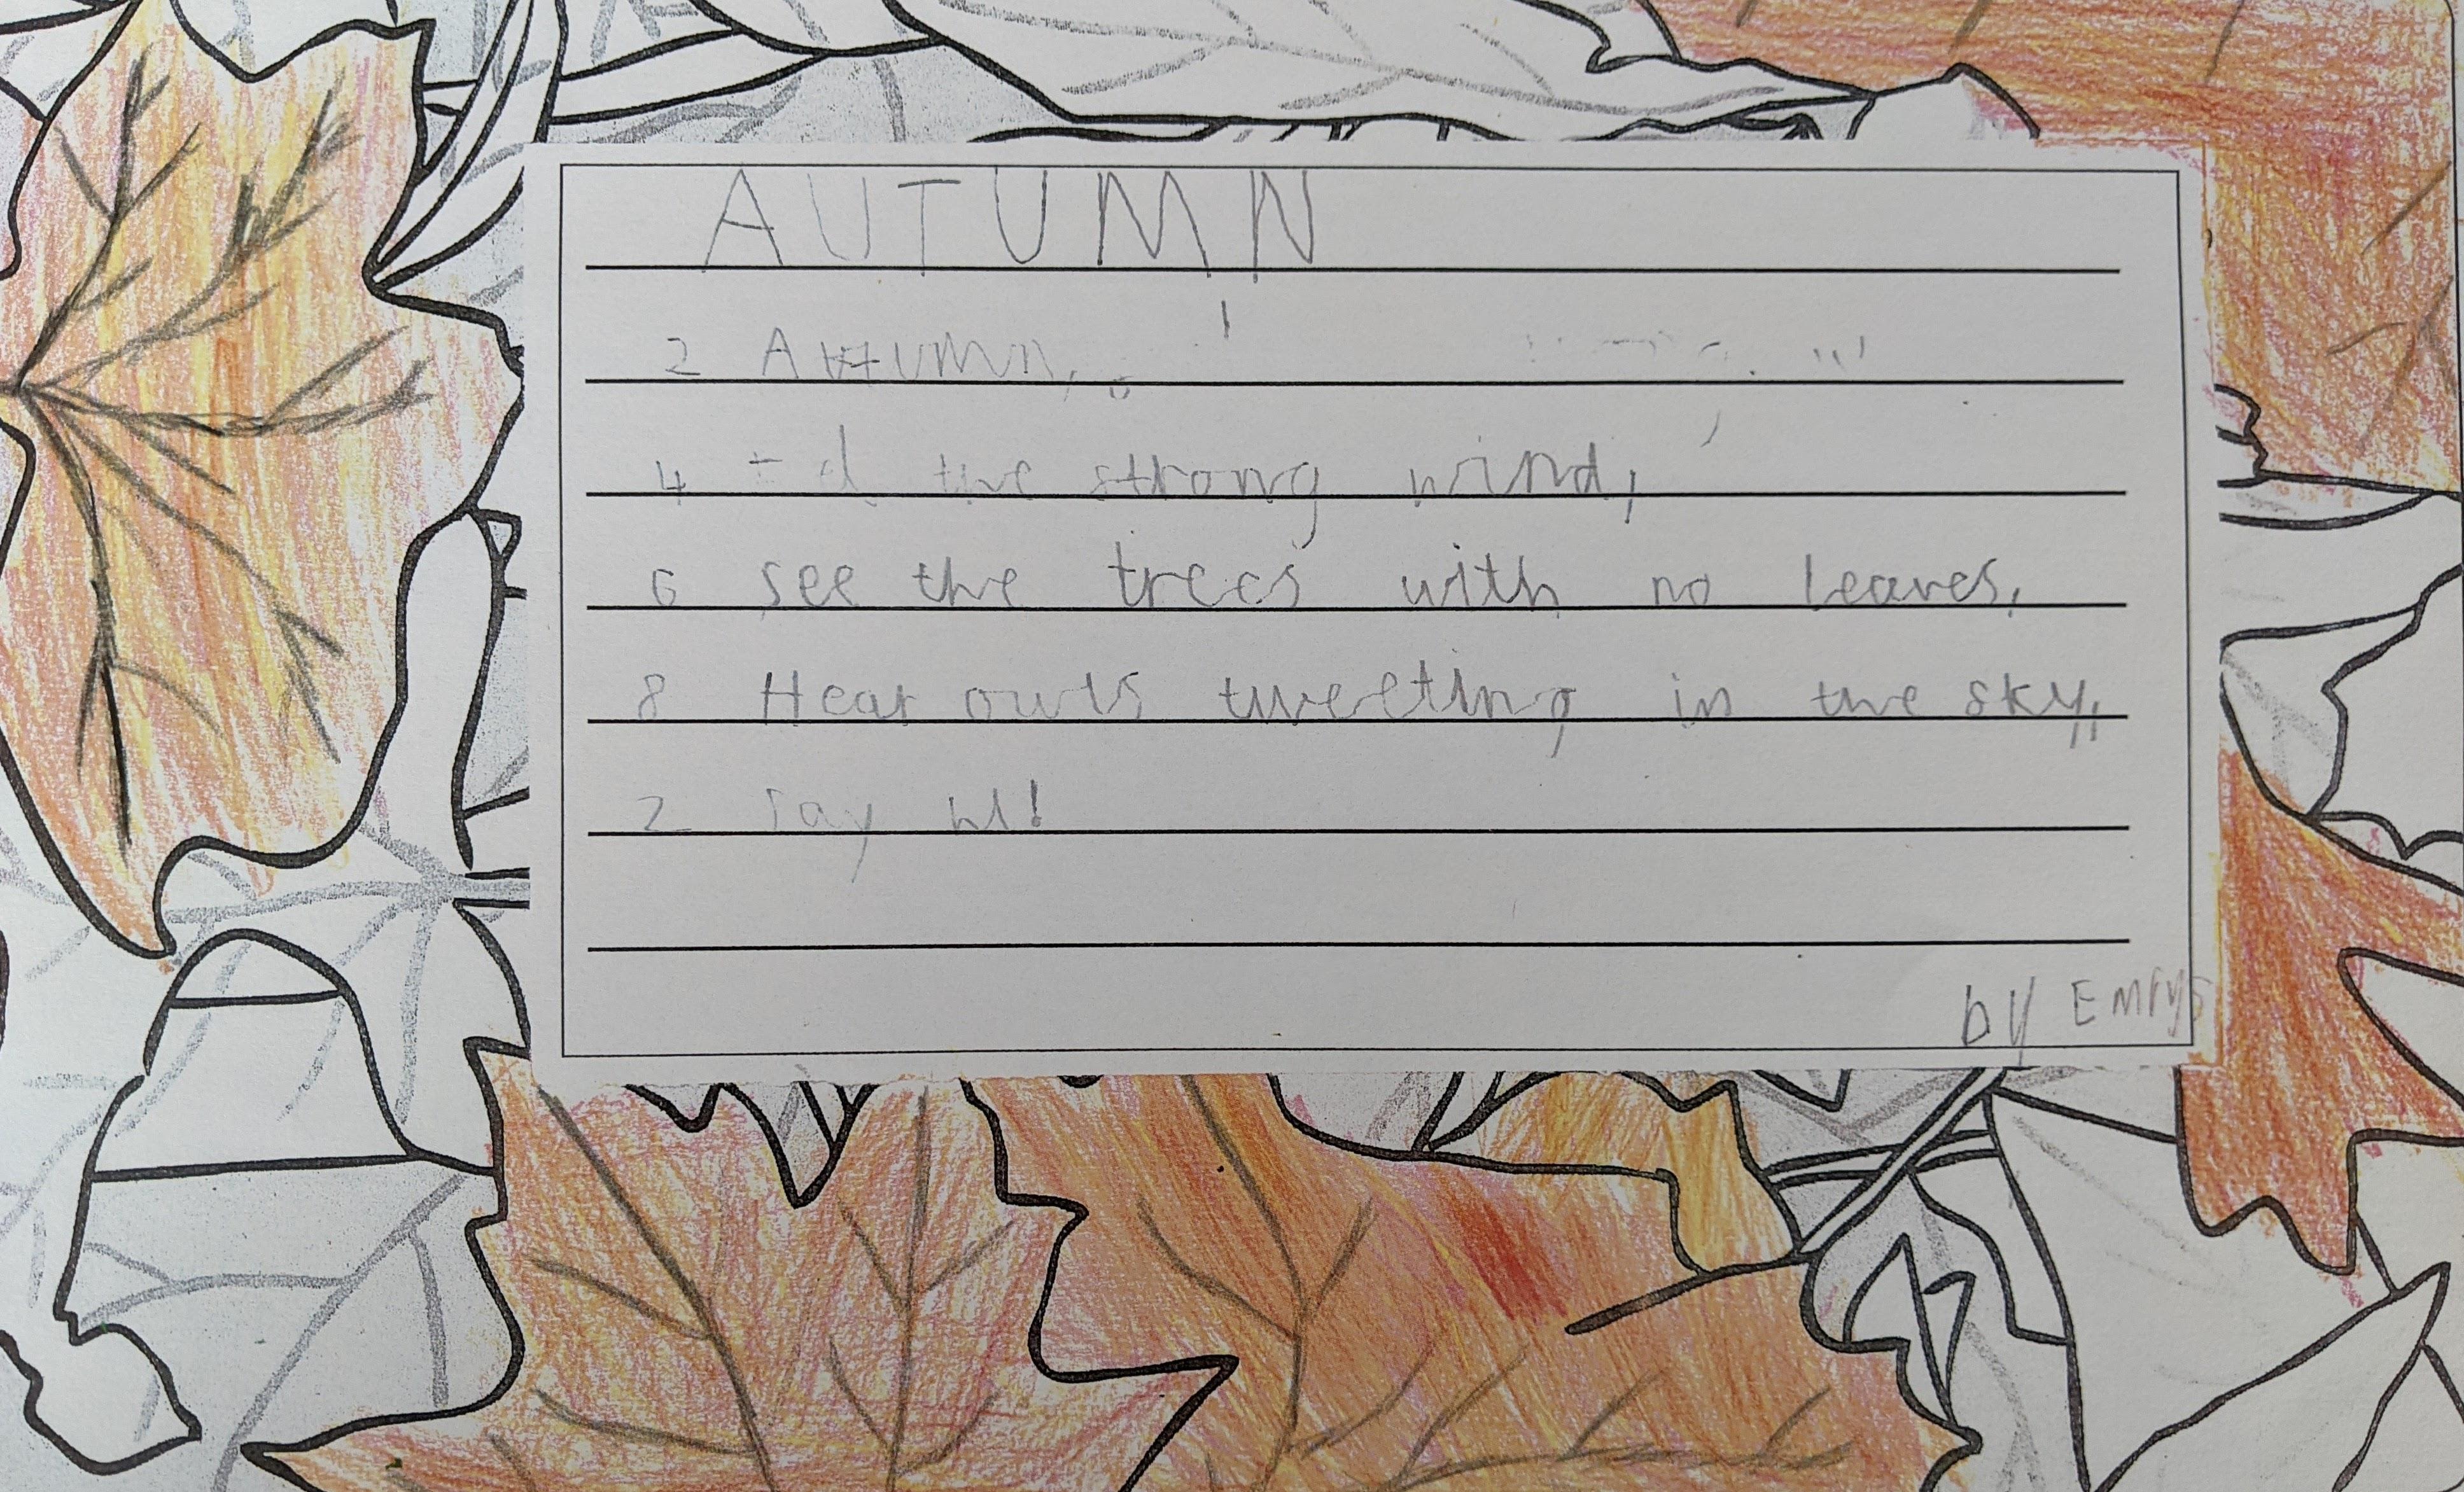 AUTUMN
2 Autumn,
4 the strong wind,
6 see the trees with no leaves,
8 Hear owls tweeting in the sky,
2 say hi!
by Emrys